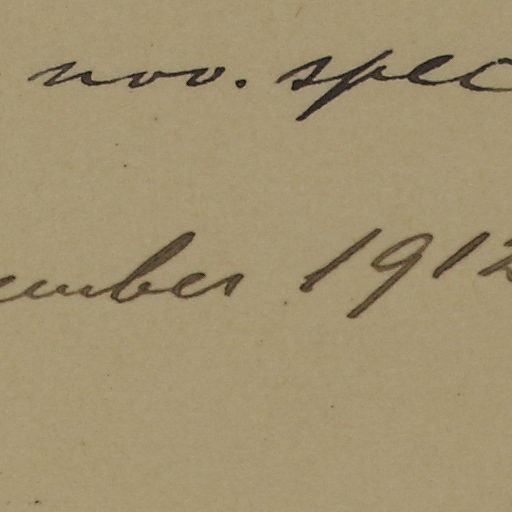 nov. spec
ember 1912